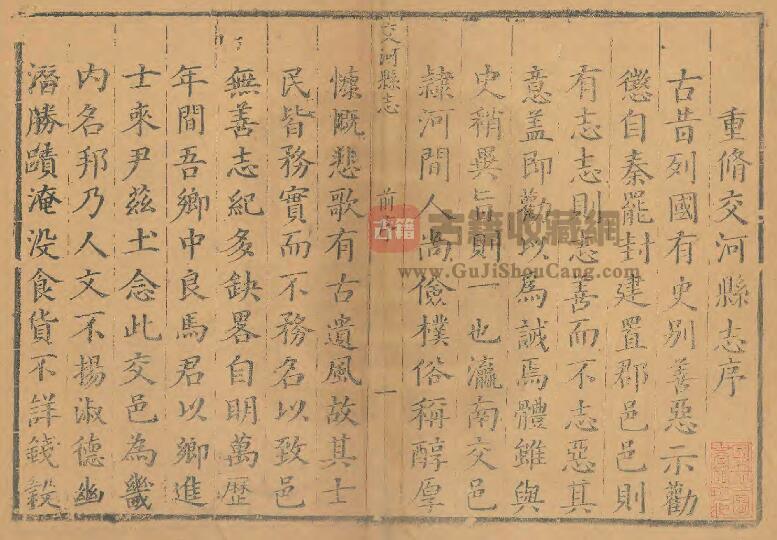 重脩交河縣志序
古昔列國有史别善惡示勸
懲自秦罷封建置郡邑邑則
有志志則志善而不志惡其
意盖即勸以為誡焉體雖與
史稍異旨則一也瀛南交邑
隸河間人尚儉樸俗稱醇厚
交河縣志
前序
一
慷慨悲歌有古遺風故其士
民皆務實而不務名以致邑
無善志紀多缺畧自明萬歷
年間吾鄉中良馬君以鄉進
士來尹茲土念此交邑為畿
内名邦乃人文不揚淑德幽
潛勝蹟淹没食貨不詳錢穀
古籍
古籍收藏網
www.GuJiShouCang.com